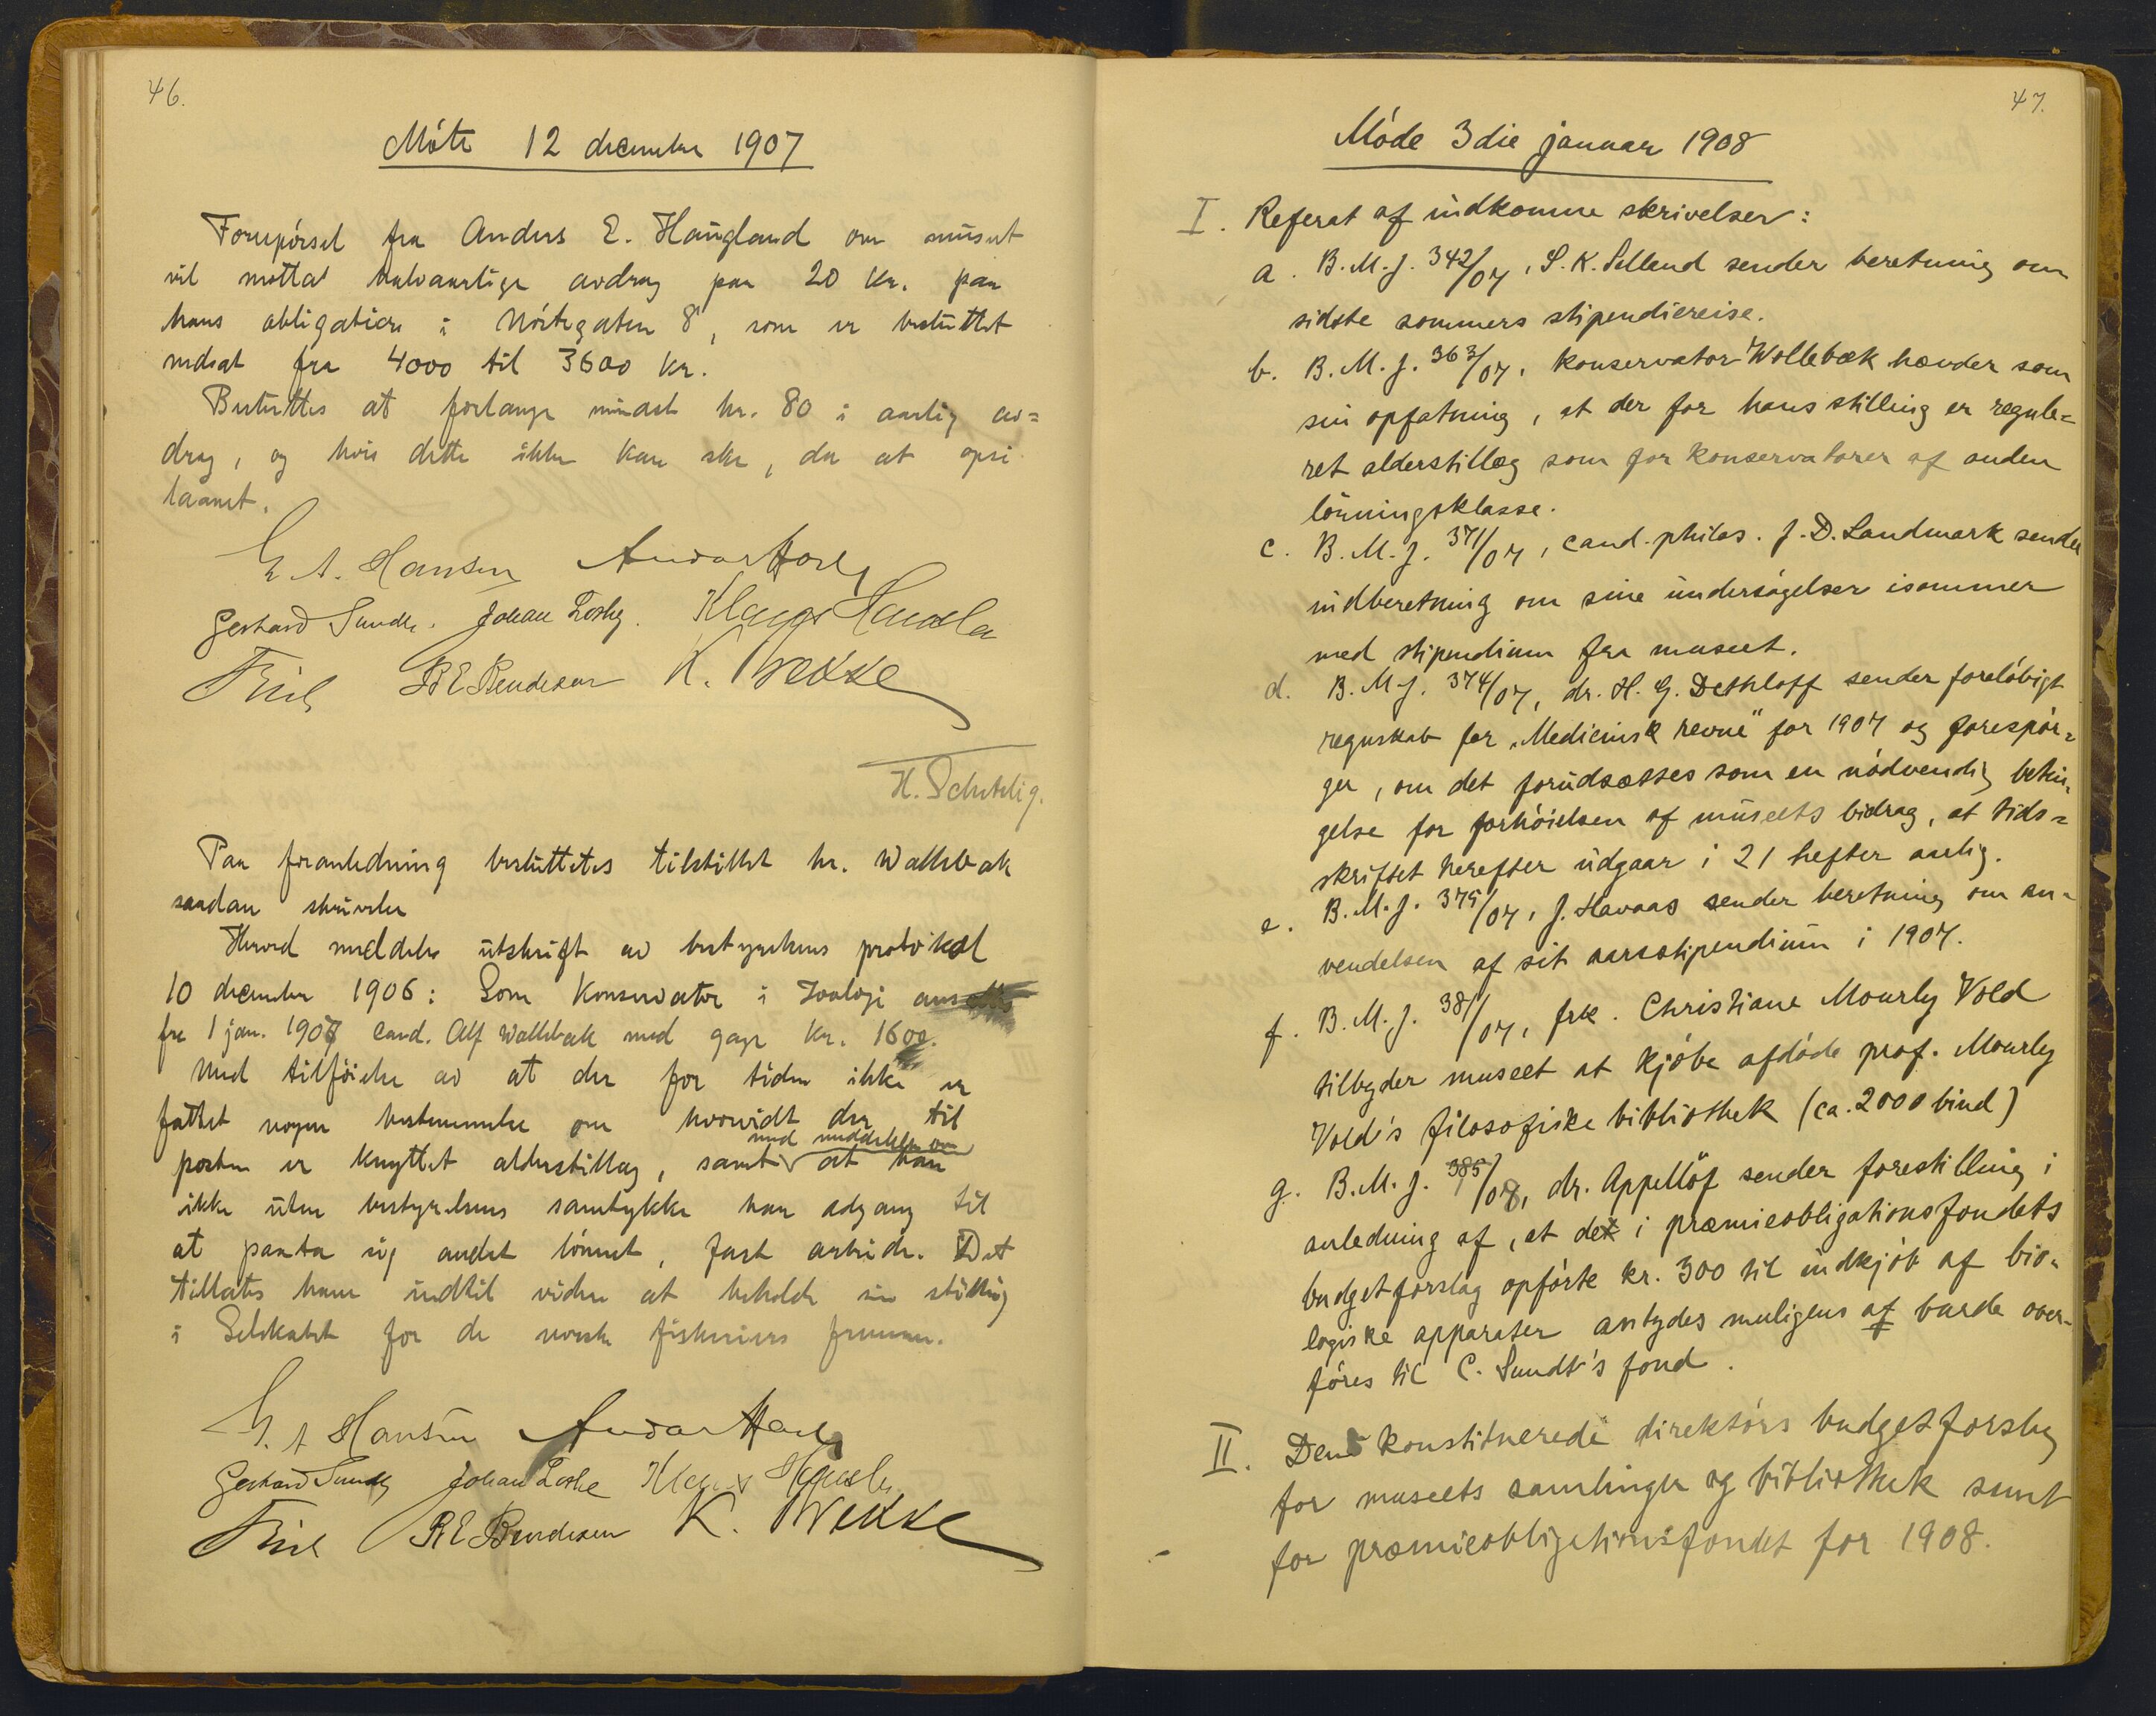 46.
Møte 12 december 1907
Forespörsel fra Anders E. Haugland om museet
vil motta halvaarlige avdrag paa 20 kr. paa
hans obligation i Nöstegaten 8, som er besluttet
nedsat fra 4000 til 3600 kr.
Besluttes at forlange mindst kr. 80 i aarlig av=
drag, og hvis dette ikke kan ske, da at opsi
laanet.
E. A. Hansen
Gerhard Sundt. Johan Losby.
Friele B E Bendixen K. Brekke
H. Schetelig.
Paa foranledning besluttetes tilstillet hr. Wollebæk
saadan skrivelse
Herved meddeles utskrift av bestyrelsens protokol
10 december 1906: Som Konservator i Zoologi ansættes
fra 1 jan. 1907 cand. Alf Wollebæk med gage kr. 1600.
Med tilföielse av at der for tiden ikke er
fattet nogen bestemmelse om hvorvidt der til
med meddelelse om
posten er knyttet alderstillæg, samt at han
ikke uten bestyrelsens samtykke har adgang til
at paata sig andet lönnet, fast arbeide. Det
tillates ham indtil videre at beholde sin stilling
i Selskabet for de norske fiskeriers fremme.
E. A Hansen
Gerhard Sundt
Friele B E Bendixen K. Brekke
47.
Möde 3die januar 1908
I. Referat af indkomne skrivelser:
a. B. M. J. 342/07, S. K. Selland sender beretning om
sidste sommers stipendiereise.
b. B. M. J. 363/07, konservator Wollebæk hævder som
sin opfatning, at der for hans stilling er regule=
ret alderstillæg som for konservatorer af anden
lönningsklasse.
c. B. M. J. 371/07, cand. philos. J. D. Landmark sender
indberetning om sine undersögelser isommer
med stipendium fra museet.
d. B. M. J. 374/07, dr. H. G. Dethloff sender forelöbigt
regnskab for „Medicinsk revue" for 1907 og forespör=
ger, om det forudsættes som en nödvendig betin=
gelse for forhöielsen af museets bidrag, at tids=
skriftet herefter udgaar i 21 hefter aarlig.
e. B. M. J. 375/07, J. Havaas sender beretning om an=
vendelsen af sit aarsstipendium i 1907.
f. B. M. J. 381/07, frk. Christiane Mourly Vold
tilbyder museet at kjöbe afdöde prof. Mourly
Vold's filosofiske bibliothek (ca. 2000 bind)
g. B. M. J. 385/07, dr. Appellöf sender forestilling i
anledning af, at det i præmieobligationsfondets
budgetforslag opförte kr. 300 til indkjöb af bio=
logiske apparater antydes muligens at burde over=
föres til C. Sundt's fond.
II. Den konstituerede direktörs budgetforslag
for museets samlinger og bibliothek samt
for præmieobligationsfondet for 1908.